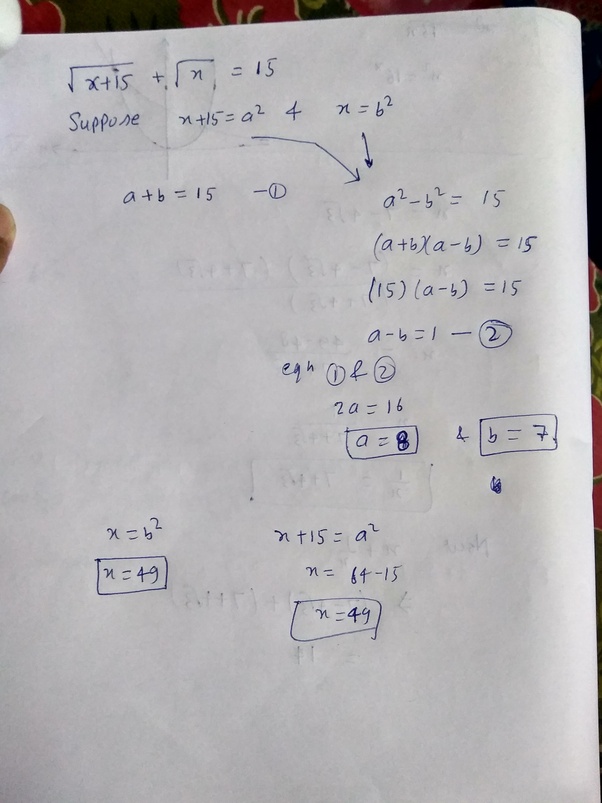 √x+15 + √x = 15
Suppose x+15 = a² & x = b²
a+b = 15 —①
a²-b² = 15
(a+b)(a-b) = 15
(15)(a-b) = 15
a-b=1 —②
eqn ① & ②
2a = 16
a = 8 & b = 7
x = b²
x = 49
x+15 = a²
x = 64-15
x = 49